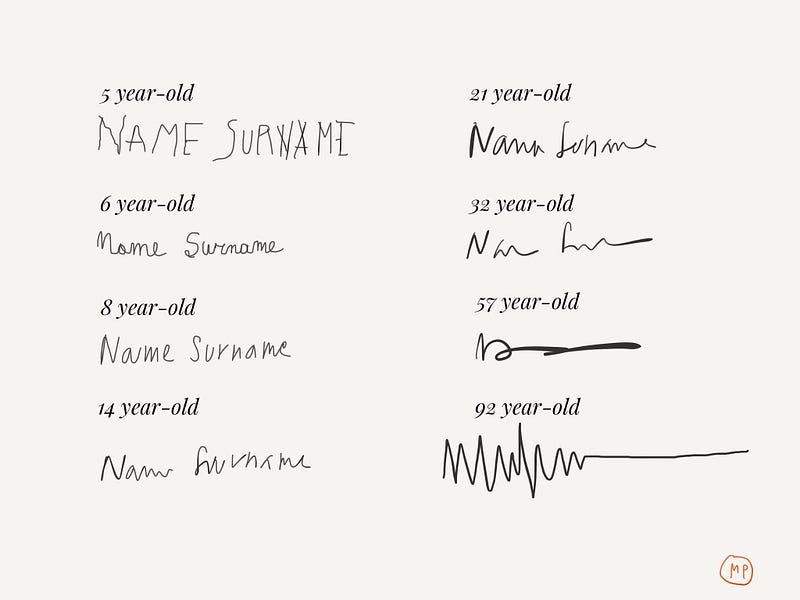 5 year-old
NAME SURNAME
6 year-old
Name Surname
8 year-old
Name Surname
14 year-old
Name Surname
21 year-old
32 year-old
57 year-old
92 year-old
MP